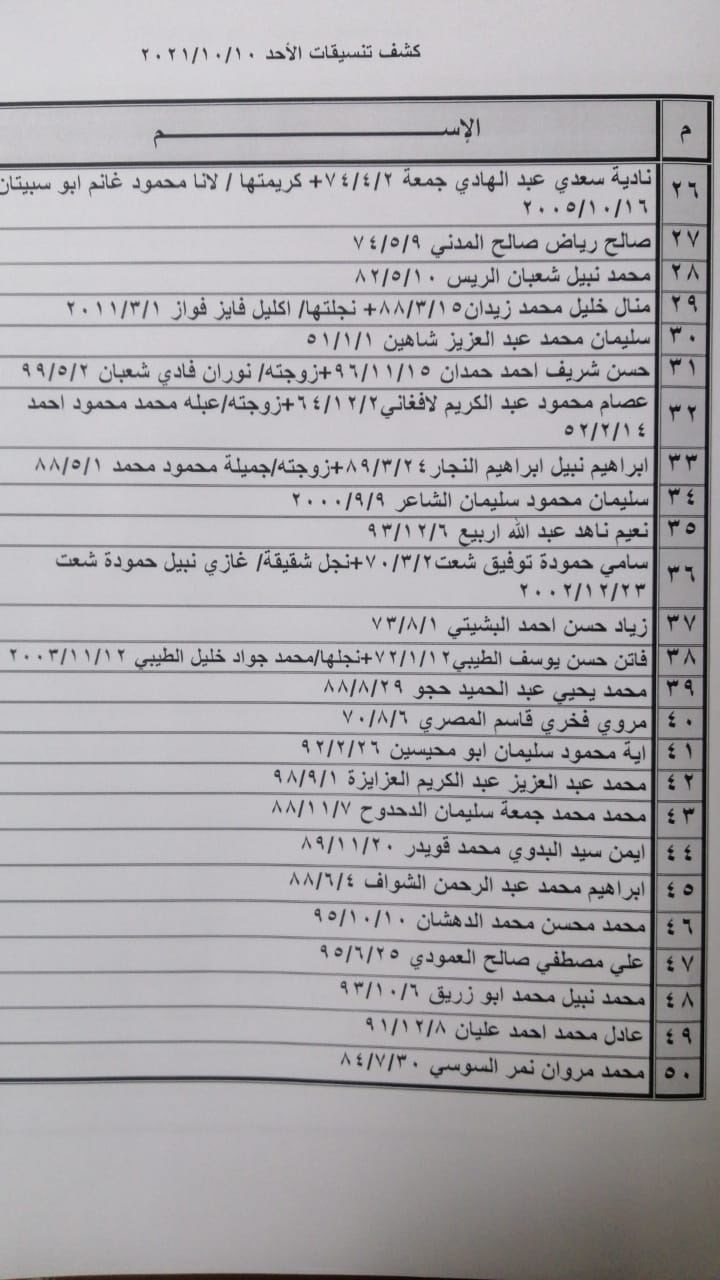 كشف تنسيقات الأحد ٢٠٢١/١٠/١٠
م الإســـــــــــــــــــــــم
٢٦ نادية سعدي عبد الهادي جمعة ٧٤/٤/٢+ كريمتها / لانا محمود غانم ابو سبيتان
٢٠٠٥/١٠/١٦
٢٧ صالح رياض صالح المدني ٧٤/٥/٩
٢٨ محمد نبيل شعبان الريس ٨٢/٥/١٠
٢٩ منال خليل محمد زيدان٨٨/٣/١٥+ نجلتها/ اكليل فايز فواز ٢٠١١/٣/١
٣٠ سليمان محمد عبد العزيز شاهين ٥١/١/١
٣١ حسن شريف احمد حمدان ٩٦/١١/١٥+زوجته/ نوران فادي شعبان ٩٩/٥/٢
٣٢ عصام محمود عبد الكريم لافغاني٦٤/١٢/٢+زوجته/عبله محمد محمود احمد
٥٢/٢/١٤
٣٣ ابراهيم نبيل ابراهيم النجار٨٩/٣/٢٤+زوجته/جميلة محمود محمد ٨٨/٥/١
٣٤ سليمان محمود سليمان الشاعر ٢٠٠٠/٩/٩
٣٥ نعيم ناهد عبد الله اربيع ٩٣/١٢/٦
٣٦ سامي حمودة توفيق شعت٧٠/٣/٢+نجل شقيقة/ غازي نبيل حمودة شعت
٢٠٠٢/١٢/٢٣
٣٧ زياد حسن احمد البشيتي ٧٣/٨/١
٣٨ فاتن حسن يوسف الطيبي٧٢/١/١٢+نجلها/محمد جواد خليل الطيبي ٢٠٠٣/١١/١٢
٣٩ محمد يحيي عبد الحميد حجو ٨٨/٨/٢٩
٤٠ مروي فخري قاسم المصري ٧٠/٨/٦
٤١ اية محمود سليمان ابو محيسين ٩٢/٢/٢٦
٤٢ محمد عبد العزيز عبد الكريم العزايزة ٩٨/٩/١
٤٣ محمد محمد جمعة سليمان الدحدوح ٨٨/١١/٧
٤٤ ايمن سيد البدوي محمد قويدر ٨٩/١١/٢٠
٤٥ ابراهيم محمد عبد الرحمن الشواف ٨٨/٦/٤
٤٦ محمد محسن محمد الدهشان ٩٥/١٠/١٠
٤٧ علي مصطفي صالح العمودي ٩٥/٦/٢٥
٤٨ محمد نبيل محمد ابو زريق ٩٣/١٠/٦
٤٩ عادل محمد احمد عليان ٩١/١٢/٨
٥٠ محمد مروان نمر السوسي ٨٤/٧/٣٠